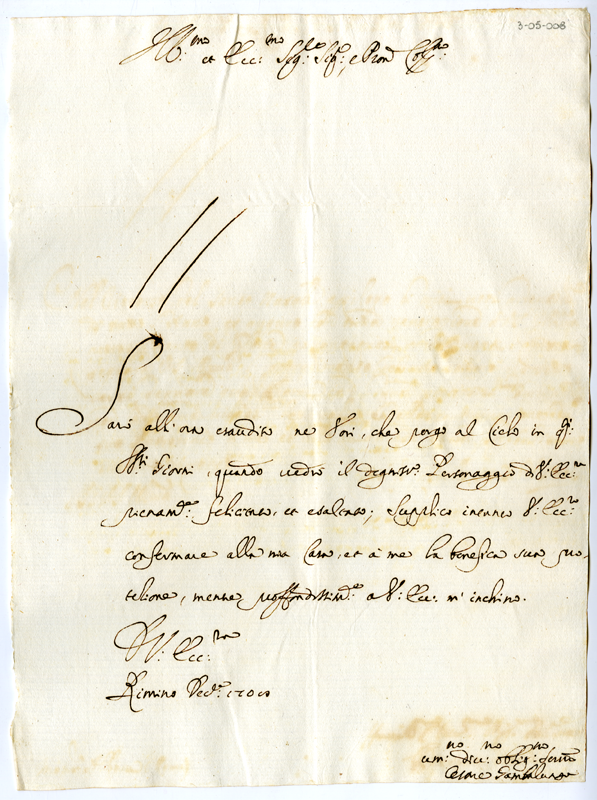 3-05-008
Ill:mo et Ecc:mo Sig:re Sig:re, e Pron Col:mo
Sarò all'ora esaudito ne Voti, che porgo al Cielo in q.ti
S.ti Giorni, quando vedrò il degniss:o Personaggio di V: Ecc:za
pienam:te felicitato, et esaltato; Supplico intanto V: Ecc:za
confermare alla mia Casa, et à me la benefica sua pro-
tetione, mentre proffondissim:te a V: Ecc: m' inchino.
D V: Ecc:za
Rimino Dec:
um: dev:mo obblig:mo Ser:re
Cesare Gambalunga